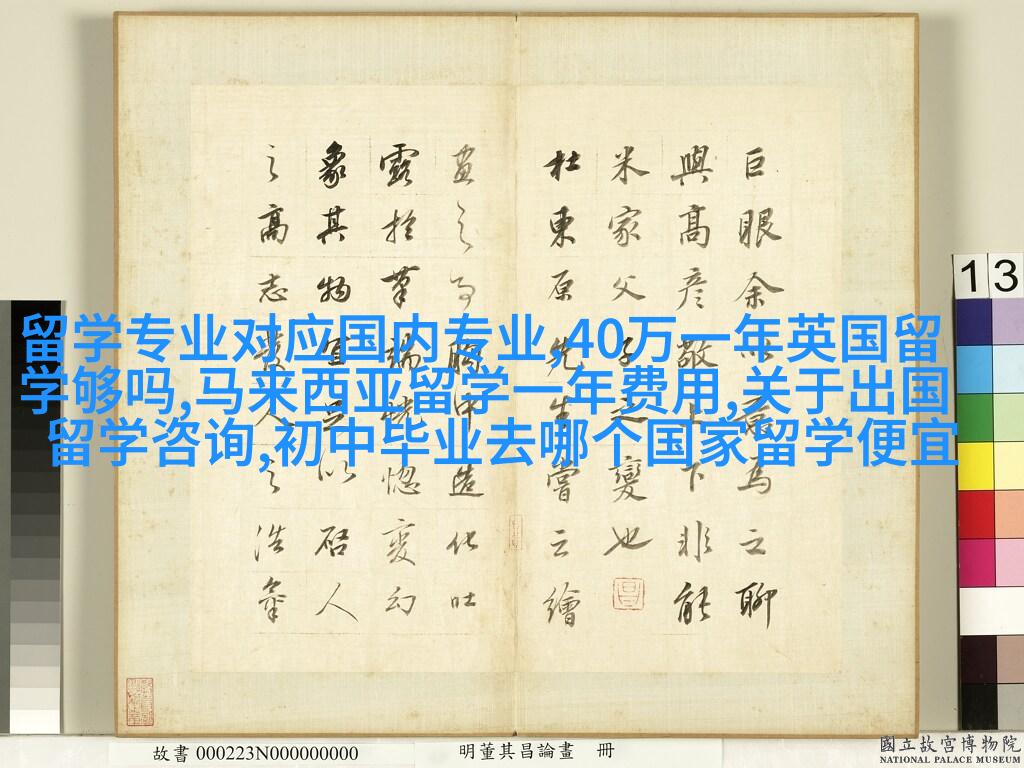 巨眼余以爲焉之聊
與高彥敬上下非能
米家父子之變也
杜東原先生嘗云繪
畫之为胸中造化吐
露於筆端恍惚變幻
象其物宜足以啓人
之高志發人之浩氣
留学专业对应国内专业,40万一年英国留
学够吗,马来西亚留学一年费用,关于出国
留学咨询,初中毕业去哪个国家留学便宜
13
故書 000223N000000000
明董其昌論畫 冊
國立故宮博物院
NATIONAL PALACE MUSEUM